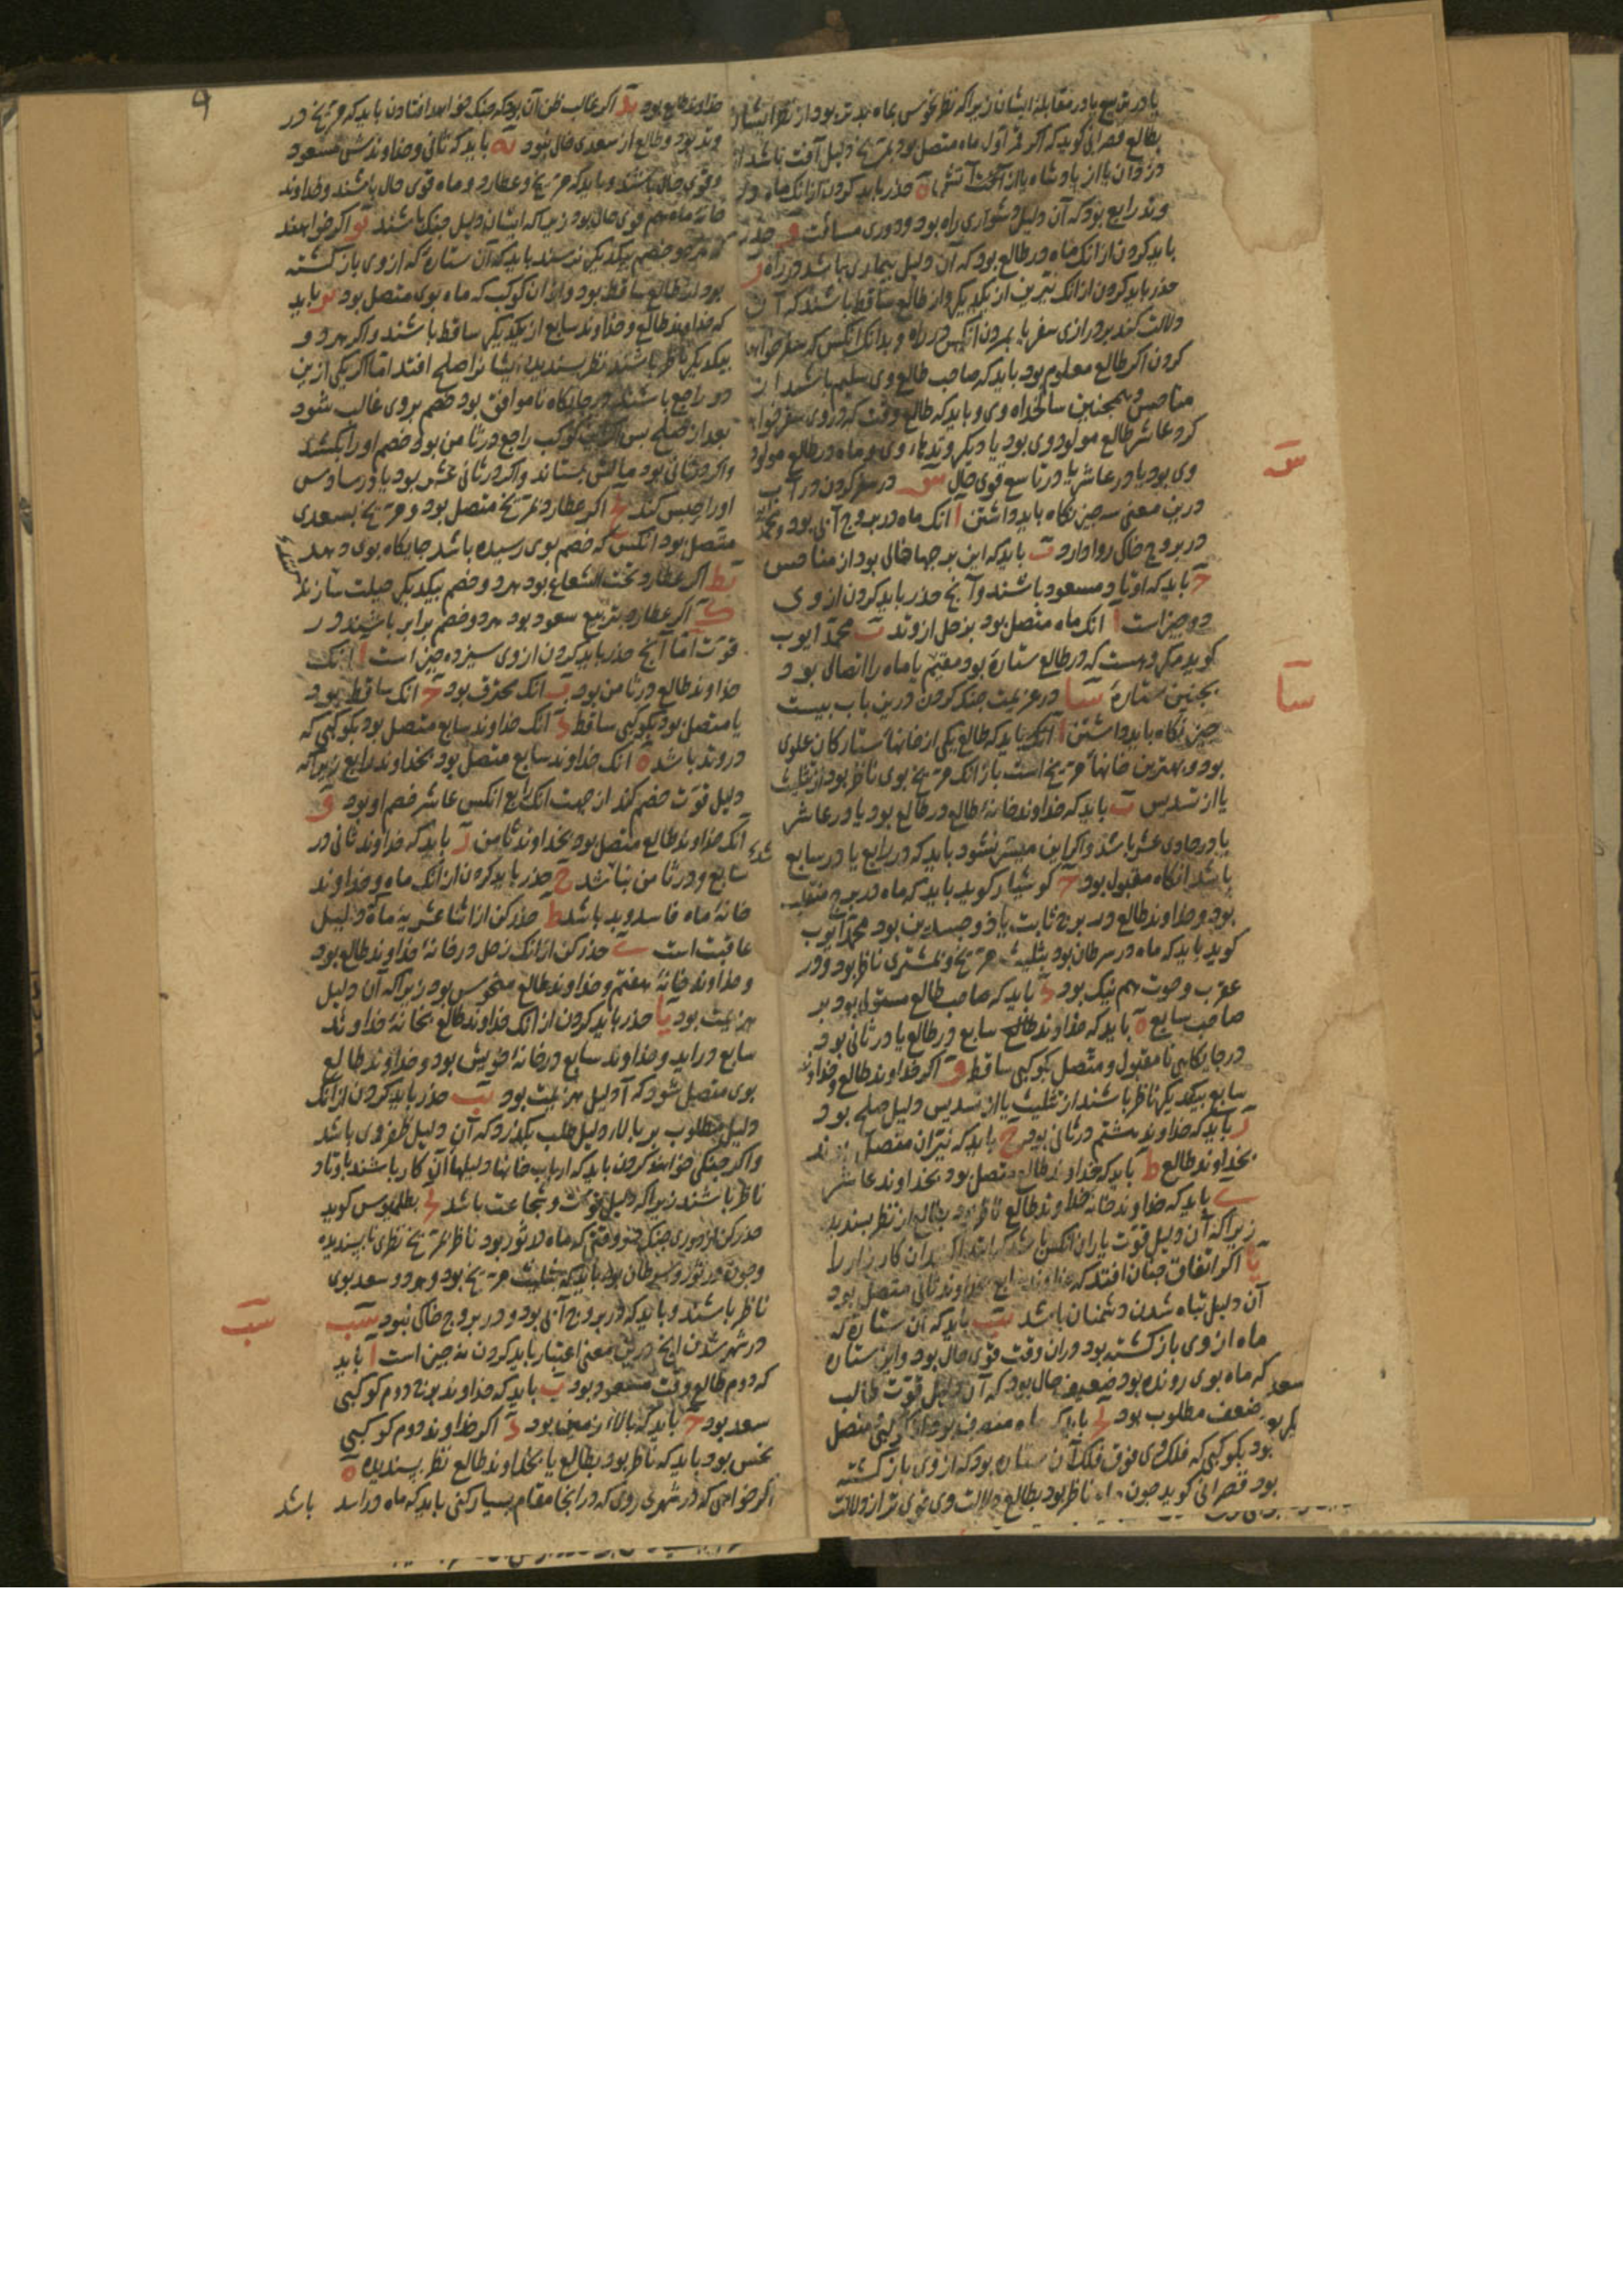 یا در تربیع یا در مقابلهٔ ایشان زیرا که نظر نحوس بماه بدتر بود از نظر ایشان
بطالع قصرانی گوید که اگر قمر اول ماه متصل بود بمریخ دلیل آفت باشد از
دزدان یا از پادشاه یا از آفت آتش ه حذر باید کردن از انک ماه در
وتد رابع بود که آن دلیل دشواری راه بود و دوری مسافت و حذر
باید کردن از انک ماه در طالع بود که آن دلیل بیماری باشد در راه ز
حذر باید کردن از انک نیرین از یکدیگر و از طالع ساقط باشند که آن
دلالت کند بر درازی سفر یا بمردن انکس در راه و بدانک انکس که سفر خواهد
کردن اگر طالع معلوم بود باید که صاحب طالع وی سلیم باشد از
مناحس و همچنین سالخداه وی و باید که طالع وقت که در وی سفر خواهد
کرد عاشر طالع مولود وی بود یا دیگر وتدهاء وی و ماه در طالع مولود
وی بود یا در عاشر یا در تاسع قوی حال س در سفر کردن در آب
درین معنی سه چیز نگاه باید داشتن ا انک ماه در بروج آبی بود و
در بروج خاکی روا دارد ب باید که این برجها خالی بود از مناحس
ج باید که اوتاد مسعود باشند و آنچ حذر باید کردن از وی
دو چیز است ا انک ماه متصل بود بزحل از وتد ب محمد ایوب
گوید میگردست که در طالع ستارهٔ بود مقیم یا ماه را اتصالی بود
بچنین ستارهٔ سا در عزیمت جنگ کردن درین باب بیست
چیز نگاه باید داشتن ا انک باید که طالع یکی از خانهاء ستارگان علوی
بود و بهترین خانهاء مریخ است باز انک مریخ بوی ناظر بود از تثلیث
یا از تسدیس ب باید که خداوند خانهٔ طالع در طالع بود یا در عاشر
یا در حادی عشر باشد و اگر این میسر نشود باید که در رابع یا در سابع
باشد انگاه مقبول بود ج کوشیار گوید باید که ماه در برج منقلب
بود و خداوند طالع در برج ثابت یا ذو جسدین بود محمد ایوب
گوید باید که ماه در سرطان بود بتثلیث مریخ و مشتری ناظر بود و در
عقرب و حوت هم نیک بود د باید که صاحب طالع مستولی بود بر
صاحب سابع ه باید که خداوند طالع سابع در طالع یا در ثانی بود
در جایگاهی نامقبول و متصل بکوکبی ساقط و اگر خداوند طالع و خداوند
سابع بیکدیگر ناظر باشند از تثلیث یا از تسدیس دلیل صلح بود
ز باید که خداوند هشتم در ثانی بود ح باید که نیران متصل بوند
بخداوند طالع ط باید که خداوند طالع متصل بود بخداوند عاشر
ی باید که خداوند خانهٔ خداوند طالع ناظر بود بطالع از نظر پسندیده
زیرا که آن دلیل قوت یاران انکس باشد که ابتدا کند آن کارزار را
یا اگر اتفاق چنان افتد که خداوند سابع بخداوند ثانی متصل بود
آن دلیل تباه شدن دشمنان باشد یب باید که آن ستاره که
ماه از وی باز گشته بود در آن وقت قوی حال بود و این ستاره
که ماه بوی رونده بود ضعیف حال بود که آن دلیل قوت طالب
و ضعف مطلوب بود یج باید که ماه منصرف بود از کوکبی و متصل
بود بکوکبی که فلک وی فوق فلک آن ستاره بود که از وی باز گشته
بود قصرانی گوید چون ماه ناظر بود بطالع دلالت وی قوی تر از دلالت
س
سا
خداوند طالع بود ید اگر غالب ظن آن بود که جنگ خواهد افتادن باید که مریخ در
وتد بود و طالع از سعدی خالی نبود یه باید که ثانی و خداوندش مسعود
و قوی حال باشند و باید که مریخ و عطارد و ماه قوی حال باشند و خداوند
خانهٔ ماه هم قوی حال بود زیرا که ایشان دلیل جنگ باشند یو اگر خواهند
که هر دو خصم بیکدیگر نرسند باید که آن ستاره که از وی باز گشته
بود از طالع ساقط بود و از آن کوکب که ماه بوی متصل بود یز باید
که خداوند طالع و خداوند سابع از یکدیگر ساقط باشند و اگر هر دو
بیکدیگر ناظر باشند نظر پسندیده ایشانرا صلح افتد اما اگر یکی ازین
دو راجع باشند در جایگاه ناموافق بود خصم بر وی غالب شود
بعد از صلح پس اگر این کوکب راجع در ثامن بود خصم او را بکشد
و اگر در ثانی بود مالش بستاند و اگر در ثانی عشر بود یا در سادس
او را حبس کند یح اگر عطارد بمریخ متصل بود و مریخ بسعدی
متصل بود انکس که خصم بوی رسیده باشد جایگاه بوی دهد
یط اگر عطارد تحت الشعاع بود هر دو خصم بیکدیگر حیلت سازند
ک اگر عطارد بتربیع سعود بود هر دو خصم برابر باشند در
قوت اما آنچ حذر باید کردن از وی سیزده چیز است ا انک
خداوند طالع در ثامن بود ب انک محترق بود ج انک ساقط بود
یا متصل بود بکوکبی ساقط د انک خداوند سابع متصل بود بکوکبی که
در وتد باشد ه انک خداوند سابع متصل بود بخداوند رابع زیرا که
دلیل قوت خصم کند از جهت انک رابع انکس عاشر خصم او بود و
آنک خداوند طالع متصل بود بخداوند ثامن ز باید که خداوند ثانی در
سابع و در ثامن نباشد ح حذر باید کردن از انک ماه و خداوند
خانهٔ ماه فاسد و بد باشد ط حذر کن از اثنا عشریهٔ ماه که دلیل
عاقبت است ی حذر کن از انک زحل در خانهٔ خداوند طالع بود
و خداوند خانهٔ هفتم و خداوند طالع منحوس بود زیرا که آن دلیل
هزیمت بود یا حذر باید کردن از انک خداوند طالع بخانهٔ خداوند
سابع در آید و خداوند سابع در خانهٔ خویش بود و خداوند طالع
بوی متصل شود که آ دلیل هزیمت بود یب حذر باید کردن از انک
دلیل مطلوب بر بالاء دلیل طلب بگذرد که آن دلیل ظفر وی باشد
و اگر جنگی خواهند کردن باید که ارباب خانها و دلیلهاء آن کار باشند باوتاد
ناظر باشند زیرا که دلیل قوت و شجاعت باشد یج بطلمیوس گوید
حذر کن از دوری جنگ در وقتی که ماه در ثور بود ناظر بمریخ نظری ناپسندیده
و چون در ثور و سرطان بود باید که بتثلیث مریخ بود و هر دو سعد بوی
ناظر باشند و باید که در بروج آبی بود و در بروج خاکی نبود سب
در شهر شدن انچ درین معنی اعتبار باید کردن نه چیز است ا باید
که دوم طالع وقت مسعود بود ب باید که خداوند دوم کوکبی
سعد بود ج باید که بالاء زمین بود د اگر خداوند دوم کوکبی
نحس بود باید که ناظر بود بطالع یا بخداوند طالع نظر پسندیده ه
اگر خواهی که در شهری روی که در انجا مقام بسیار کنی باید که ماه در اسد
باشد
سب